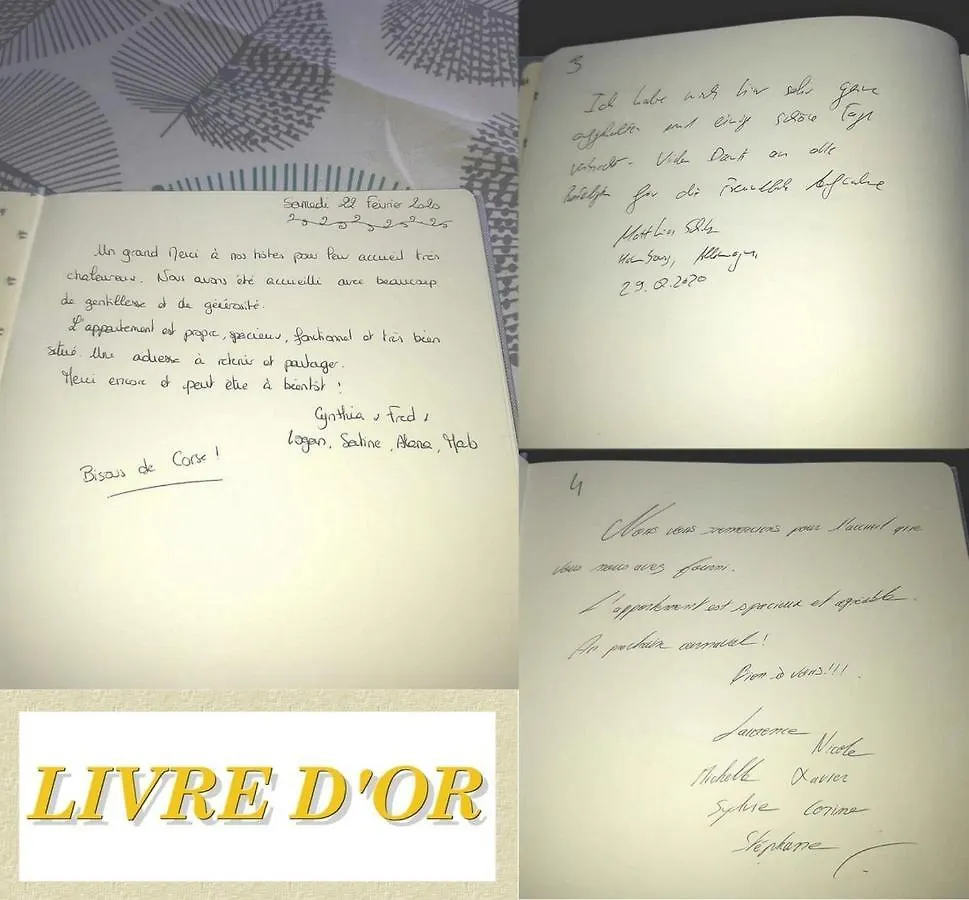 Samedi 22 Février 2020
Un grand Merci à nos hôtes pour leur accueil très
chaleureux. Nous avons été accueilli avec beaucoup
de gentillesse et de générosité.
L'appartement est propre, spacieux, fonctionnel et très bien
situé. Une adresse à retenir et partager.
Merci encore et peut être à bientôt !
Cynthia, Fred,
Logan, Satine,
Bisous de Corse !
3
Ich habe mich hier sehr gerne
aufgehalten und einige schöne Tage
verbracht. Vielen Dank an alle
Beteiligten für die freundliche Aufnahme
Matthias
Hamburg, Allemagne,
2020
4
Nous vous remercions pour l'accueil que
vous nous avez fourni.
L'appartement est spacieux et agréable.
Au prochain carnaval !
Bien à vous !!!
Laurence
Nicole
Michelle Xavier
Sylvie Corine
Stéphane
LIVRE D'OR